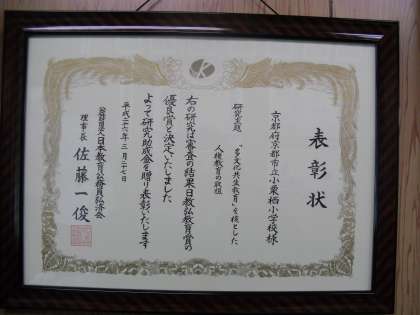 表彰状
京都府京都市立小栗栖小学校様
研究主題 “多文化共生教育”を核とした
人権教育の取組
右の研究は審査の結果日教弘教育賞の
優良賞と決定いたしました
よって研究助成金を贈り表彰いたします
平成二十六年三月二十七日
公益財団法人日本教育公務員弘済会
理事長 佐藤一俊